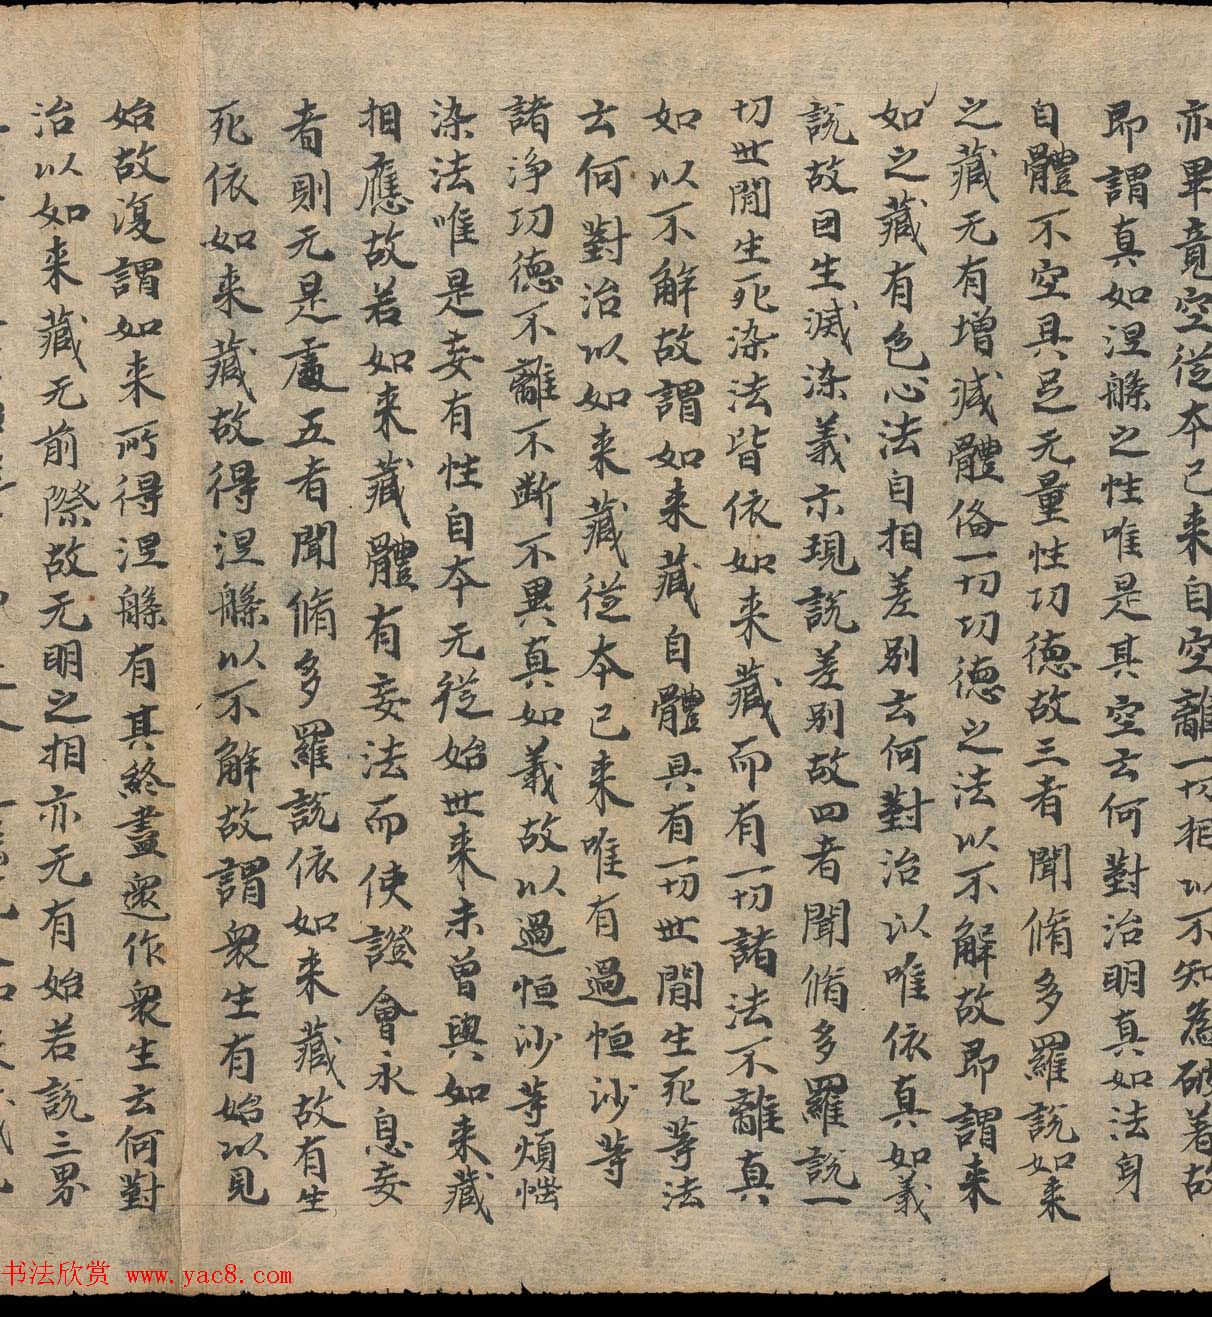 亦畢竟空從本已来自空離一切相以不知為破着故
即謂真如涅槃之性唯是其空云何對治明真如法身
自體不空具足无量性功德故三者聞脩多羅說如来
之藏无有增減體俻一切功德之法以不解故即謂来
如之藏有色心法自相差別云何對治以唯依真如義
說故因生滅染義示現說差別故四者聞脩多羅說一
切世間生死染法皆依如来藏而有一切諸法不離真
如以不解故謂如来藏自體具有一切世間生死等法
云何對治以如来藏從本已来唯有過恒沙等
諸淨功德不離不断不異真如義故以過恒沙等煩惱
染法唯是妄有性自本无從始世来未曾與如来藏
相應故若如来藏體有妄法而使證會永息妄
者則无是處五者聞脩多羅說依如来藏故有生
死依如来藏故得涅槃以不解故謂衆生有始以見
始故復謂如来所得涅槃有其終盡還作衆生云何對
治以如来藏无前際故无明之相亦无有始若說三界
书法欣赏 www.yac8.com